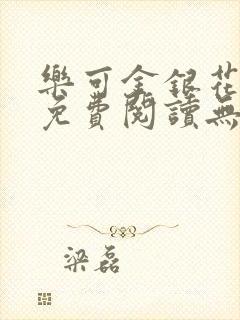 樂可金銀花
免費閱讀無
梁磊